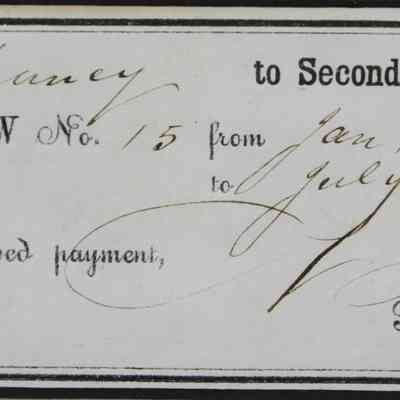 to Second
No. 15 from Jan
to July
payment,